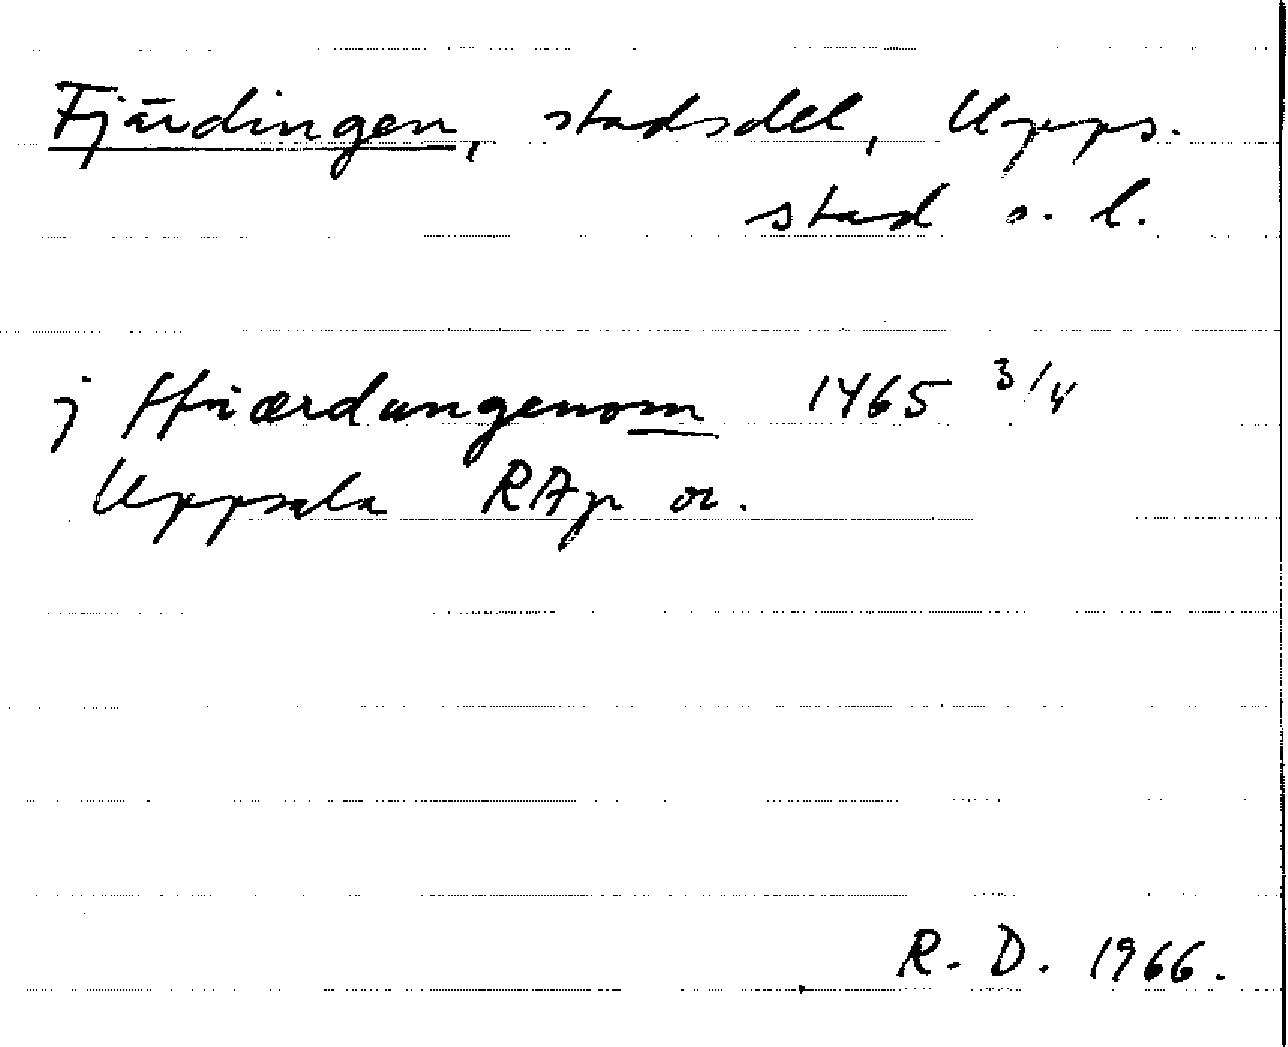 Fjärdingen, stadsdel, Upps.
stad o. l.
j ffiærdungenom 1465 3/4
Uppsala RAp or.
R. D. 1966.